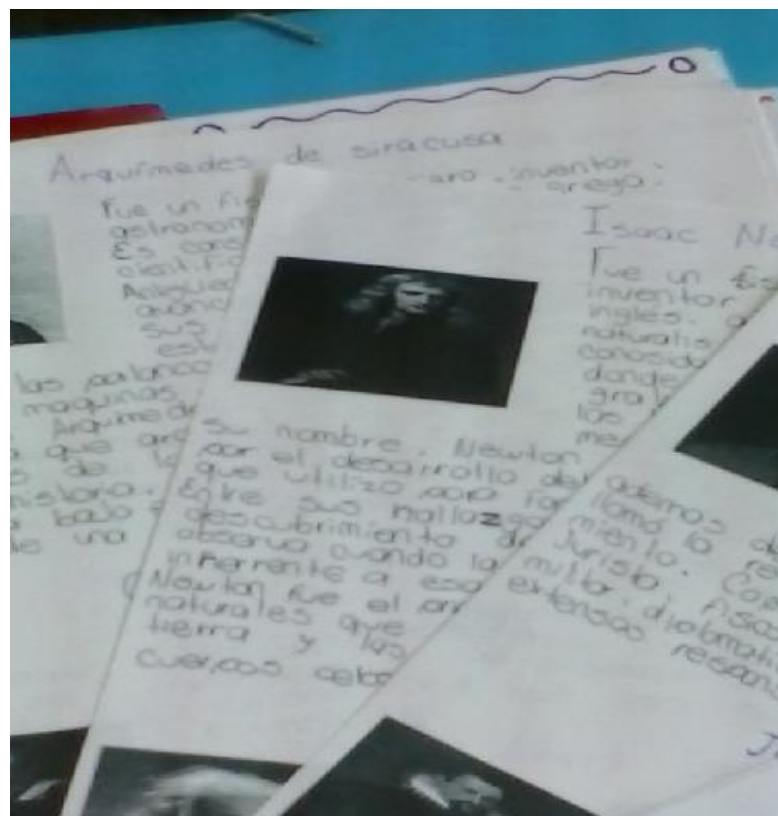 Arquímedes de siracusa
Fue un fis
inventor
griego.
astronom
Es cons
científic
Antigüed
sus
est
las palanca
maquinas
Arquimede
que arq
s de la
historia.
bajo
de una
Isaac Ne
Fue un fis
inventor
inglés.
naturalis
conosido
donde
gra
las
me
Su nombre. Newton
por el desarrollo del
que utilizo para
Entre sus hallazgo
descubrimiento de
observa cuando la
inherrente a eso
Newton fue el pri
naturales que
tierra y las
cuerpos celes
ademas de
llamó la re
miento. Cop
Jurista, fisico
militar, diplomati
extensas respon